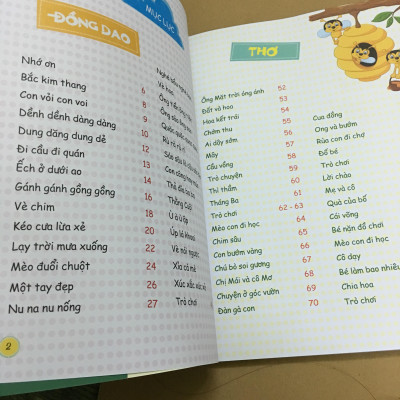 MỤC LỤC
ĐỒNG DAO
Nhớ ơn
Bắc kim thang 6
Con vỏi con voi 8
Dềnh dềnh dàng dàng 9
Dung dăng dung dẻ 10
Đi cầu đi quán 12
Ếch ở dưới ao 13
Gánh gánh gồng gồng 14
Vè chim 16
Kéo cưa lừa xẻ 18
Lạy trời mưa xuống 20
Mèo đuổi chuột 22
Một tay đẹp 24
Nu na nu nống 26
27
Thằng Cuội
Ú ò ú ập
Úp lá khoai
Vè nói ngược
Xỉa cá mè
Xúc xắc xúc xẻ
Trò chơi
2
THƠ
Ông Mặt trời óng ánh 52
Đất và hoa 53
Hoa kết trái 54
Chồm thu 55
Ai dậy sớm 56
Mây 57
Cầu vồng 58
Trò chuyện 59
Thì thầm 60
Tháng Ba 61
Trò chơi 62 - 63
Mèo con đi học 64
Chim sâu 65
Con bướm vàng 66
Chú bò soi gương 67
Chị Mái và cô Mơ 68
Chuyện ở góc vườn 69
Đàn gà con 70
Cua đồng
Ong và bướm
Rùa con đi chợ
Đố bé
Trò chơi
Lời chào
Mẹ và cô
Quà của bố
Cái võng
Bé nặn đồ chơi
Mèo con đi học
Cô dạy
Bé làm bao nhiêu
Chia hoa
Trò chơi